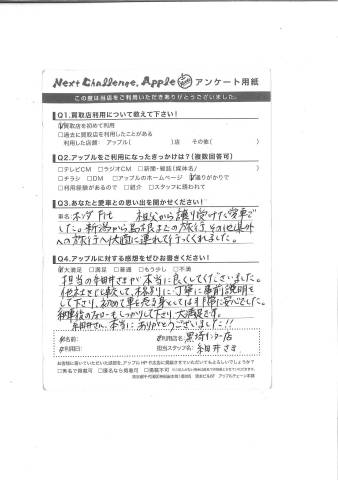 Next Challenge. Apple アンケート用紙
この度は当店をご利用いただきありがとうございました。
Q1.買取店利用について教えて下さい!
買取店を初めて利用
□過去に買取店を利用したことがある
利用した店舗: アップル( )店 その他( )
Q2.アップルをご利用になったきっかけは?(複数回答可)
□テレビCM □ラジオCM □新聞・雑誌(媒体名/ )
□チラシ □DM □アップルのホームページ 通りがかりで
□利用経験があるので □紹介 □スタッフに誘われて
Q3.あなたと愛車との思い出をお聞かせください!
車名 ホンダ Fit 祖父から譲り受けた愛車で
した。新潟から島根までの旅行、その他県外
への旅行へ大変に連れて行ってくれました。
Q4.アップルに対する感想をぜひお書きください!
大満足 □満足 □普通 □もう少し □不満
担当の細井さまが本当に良くしてくださいました。
他社さまと比較して、格別に丁寧に事前説明を
して下さり、初めて車を売る身としては非常に安心でした。
納車後のフォローもしっかりして下さり、大満足です。
細井さん、本当にありがとうございました!!
お名前: ご利用店名: 黒埼インター店
ご利用日: 担当スタッフ名: 細井さま
お客様に書いていただいた感想を、アップルHPや広告に掲載させていただいてもよろしいでしょうか?
□実名で掲載可 □匿名なら掲載可 □掲載不可